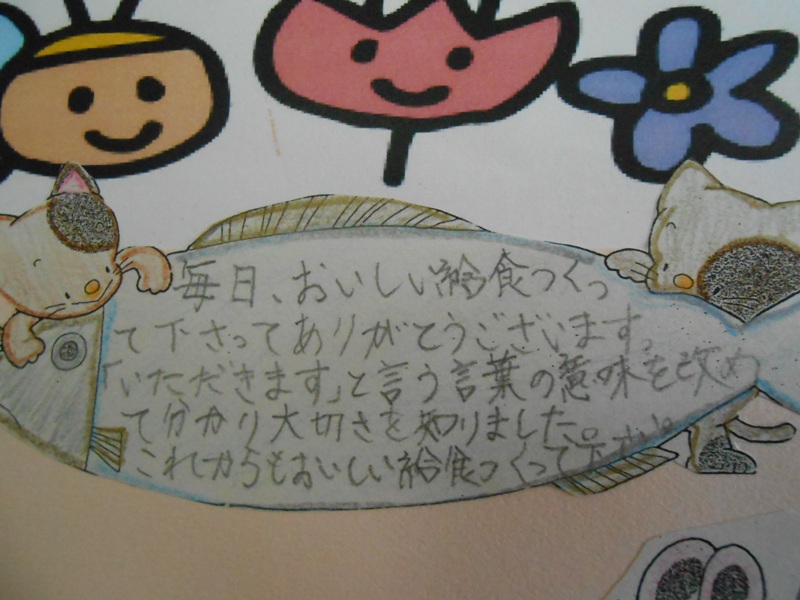 毎日、おいしい給食つくっ
て下さってありがとうございます。
「いただきます」と言う言葉の意味を改め
て分かり大切さを知りました。
これからもおいしい給食つくって下さい。